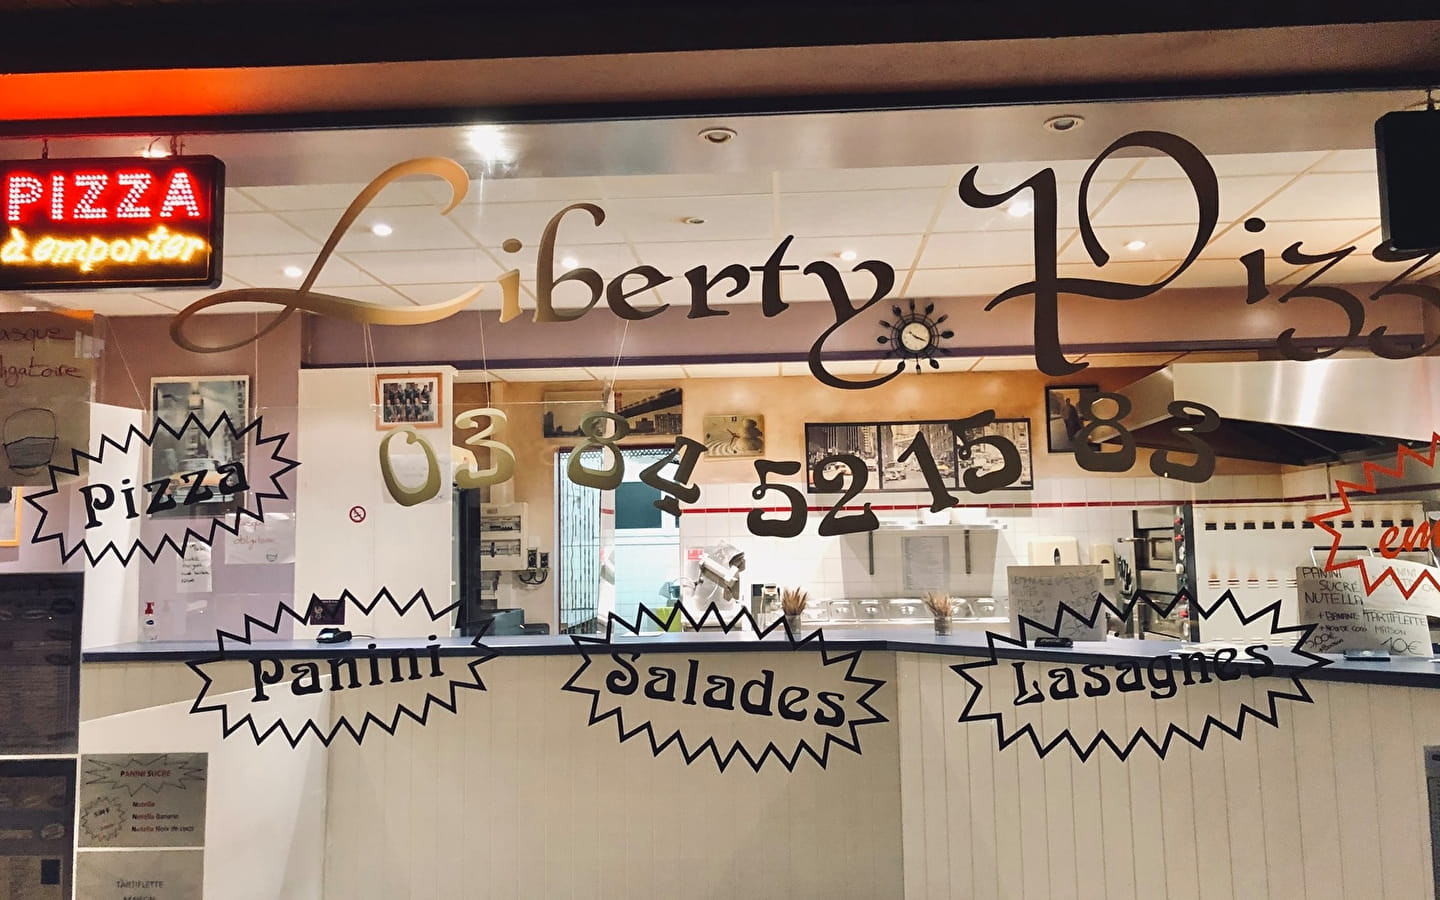 PIZZA
à emporter
Liberty Pizz
asque
ligatoire
03 84 52 15 83
Pizza
em
Panini
Salades
Lasagnes
PANINI
SUCRÉ
NUTELLA
+ BANANE
TARTIFLETTE
MAISON
10€
PANINI SUCRE
Nutella
Nutella Banane
Nutella Noix de coco
TARTIFLETTE